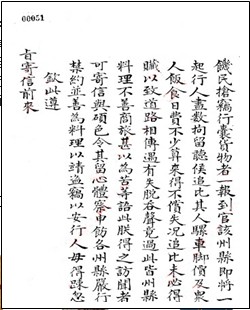 00051
饑民搶竊行囊貨物者一報到官該州縣即將一
起行人盡數拘留聽候追比其人騾車脚價及衆
人飯食日費不少算來得不償失況追比未必得
贓以致道路相傳遇有失脫吞聲竟過此皆州縣
料理不善商旅甚以為苦等語此朕得之訪聞者
可寄信與碩色令其留心體察申飭各州縣嚴行
禁約並善為料理以靖盜竊以安行人毋得踈忽
欽此遵
旨寄信前來